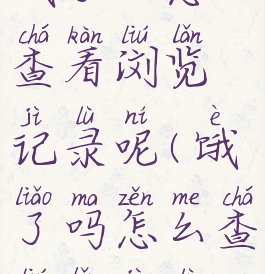 chá kàn liú lǎn
查看浏览
jì lù ní è
记录呢(饿
liǎo ma zěn me chá
了吗怎么查